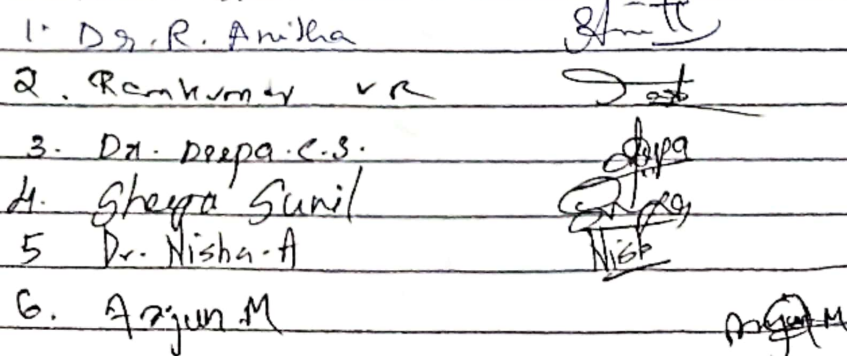 1. Dr. R. Anitha
2. Ramkumar V R
3. Dr. Deepa.C.S. Deepa
4. Sheeja Sunil
5 Dr. Nisha.A Nish
6. Arjun.M Arjun.M